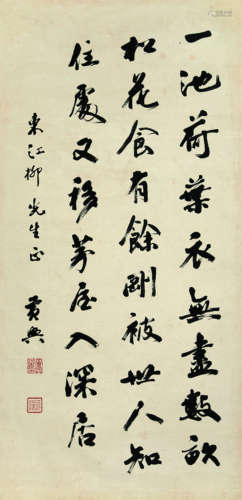 一池荷葉衣無盡數畝
松花食有餘剛被世人知
住處又移茅屋入深居
東江柳先生正
黃興